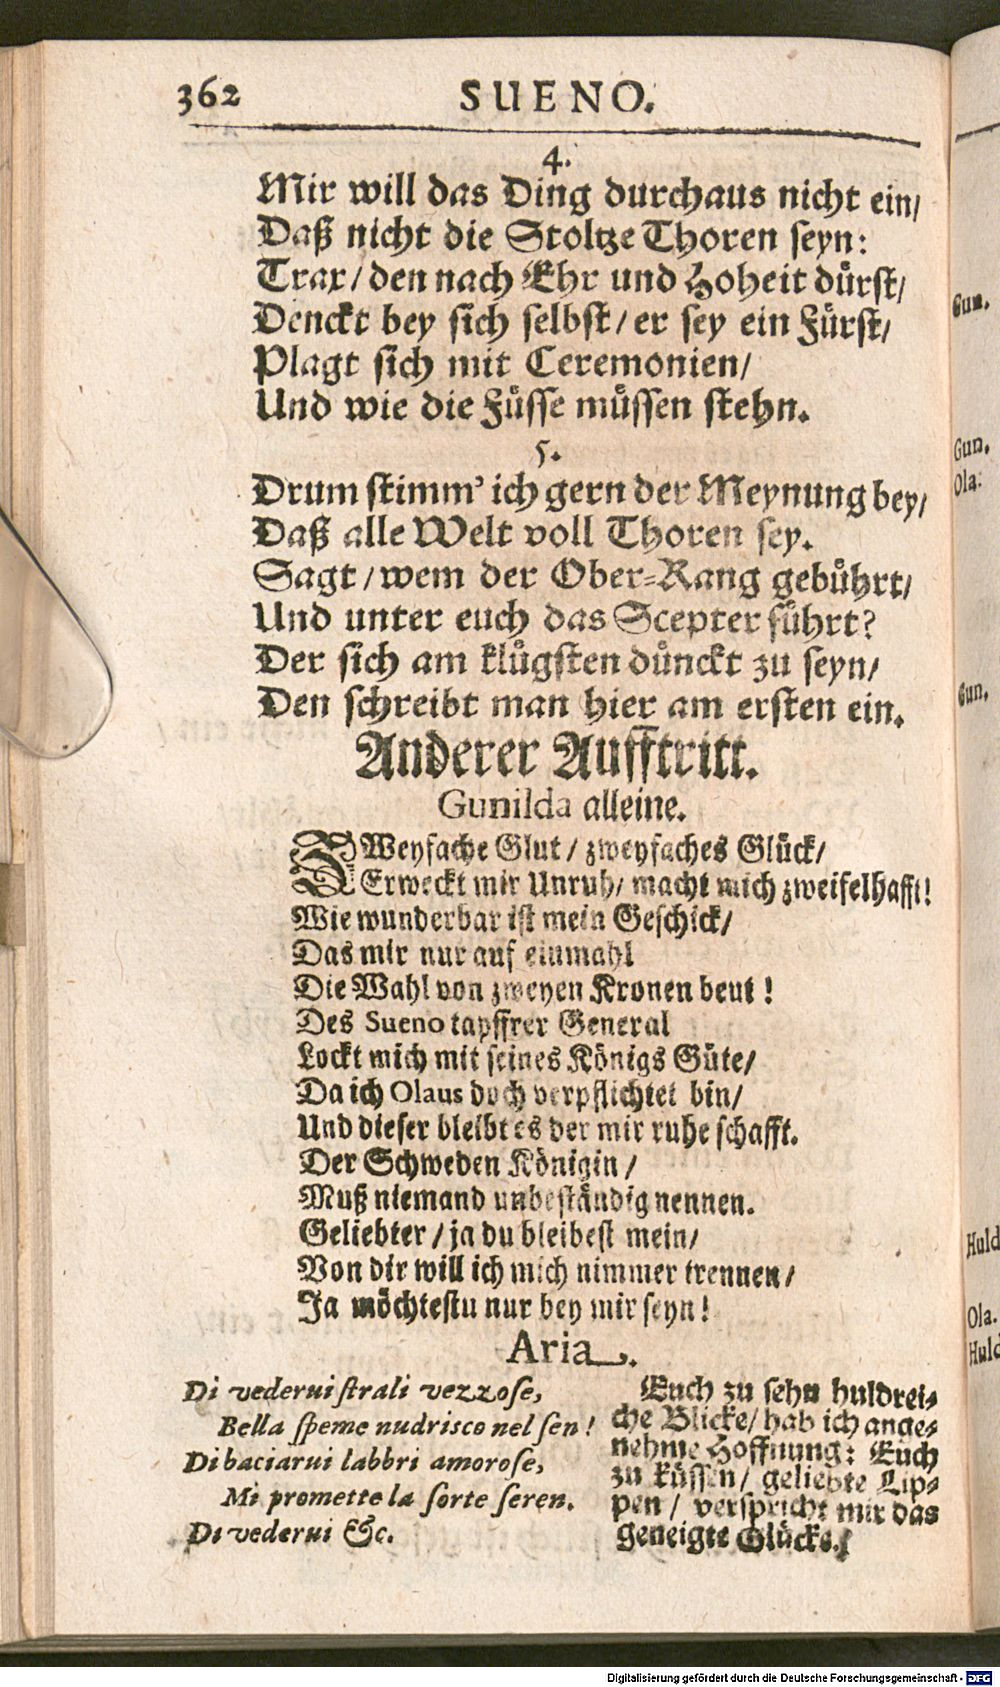 362 SUENO.
4.
Mir will das Ding durchaus nicht ein/
Daß nicht die Stoltze Thoren seyn:
Trax/ den nach Ehr und Hoheit dürst/
Denckt bey sich selbst/ er sey ein Fürst/
Plagt sich mit Ceremonien/
Und wie die Füsse müssen stehn.
5.
Drum stimm' ich gern der Meynung bey/
Daß alle Welt voll Thoren sey.
Sagt/ wem der Ober-Rang gebührt/
Und unter euch das Scepter führt?
Der sich am klügsten dünckt zu seyn/
Den schreibt man hier am ersten ein.
Anderer Aufftritt.
Gunilda alleine.
ZWeyfache Glut/ zweyfaches Glück/
Erweckt mir Unruh/ macht mich zweifelhafft!
Wie wunderbar ist mein Geschick/
Das mir nur auf einmahl
Die Wahl von zweyen Kronen beut!
Des Sueno tapffrer General
Lockt mich mit seines Königs Güte/
Da ich Olaus doch verpflichtet bin/
Und dieser bleibt es der mir ruhe schafft.
Der Schweden Königin/
Muß niemand unbeständig nennen.
Geliebter/ ja du bleibest mein/
Von dir will ich mich nimmer trennen/
Ja möchtestu nur bey mir seyn!
Aria.
Di vederui strali vezzose,
Bella speme nudrisco nel sen!
Di baciarui labbri amorose,
Mi promette la sorte seren.
Di vederui &c.
Euch zu sehn huldrei-
che Blicke/ hab ich ange-
nehme Hoffnung: Euch
zu küssen/ geliebte Lip-
pen/ verspricht mir das
geneigte Glücke.
Gun.
Gun.
Ola:
Gun.
Huld
Ola.
Huld
Digitalisierung gefördert durch die Deutsche Forschungsgemeinschaft - DFG